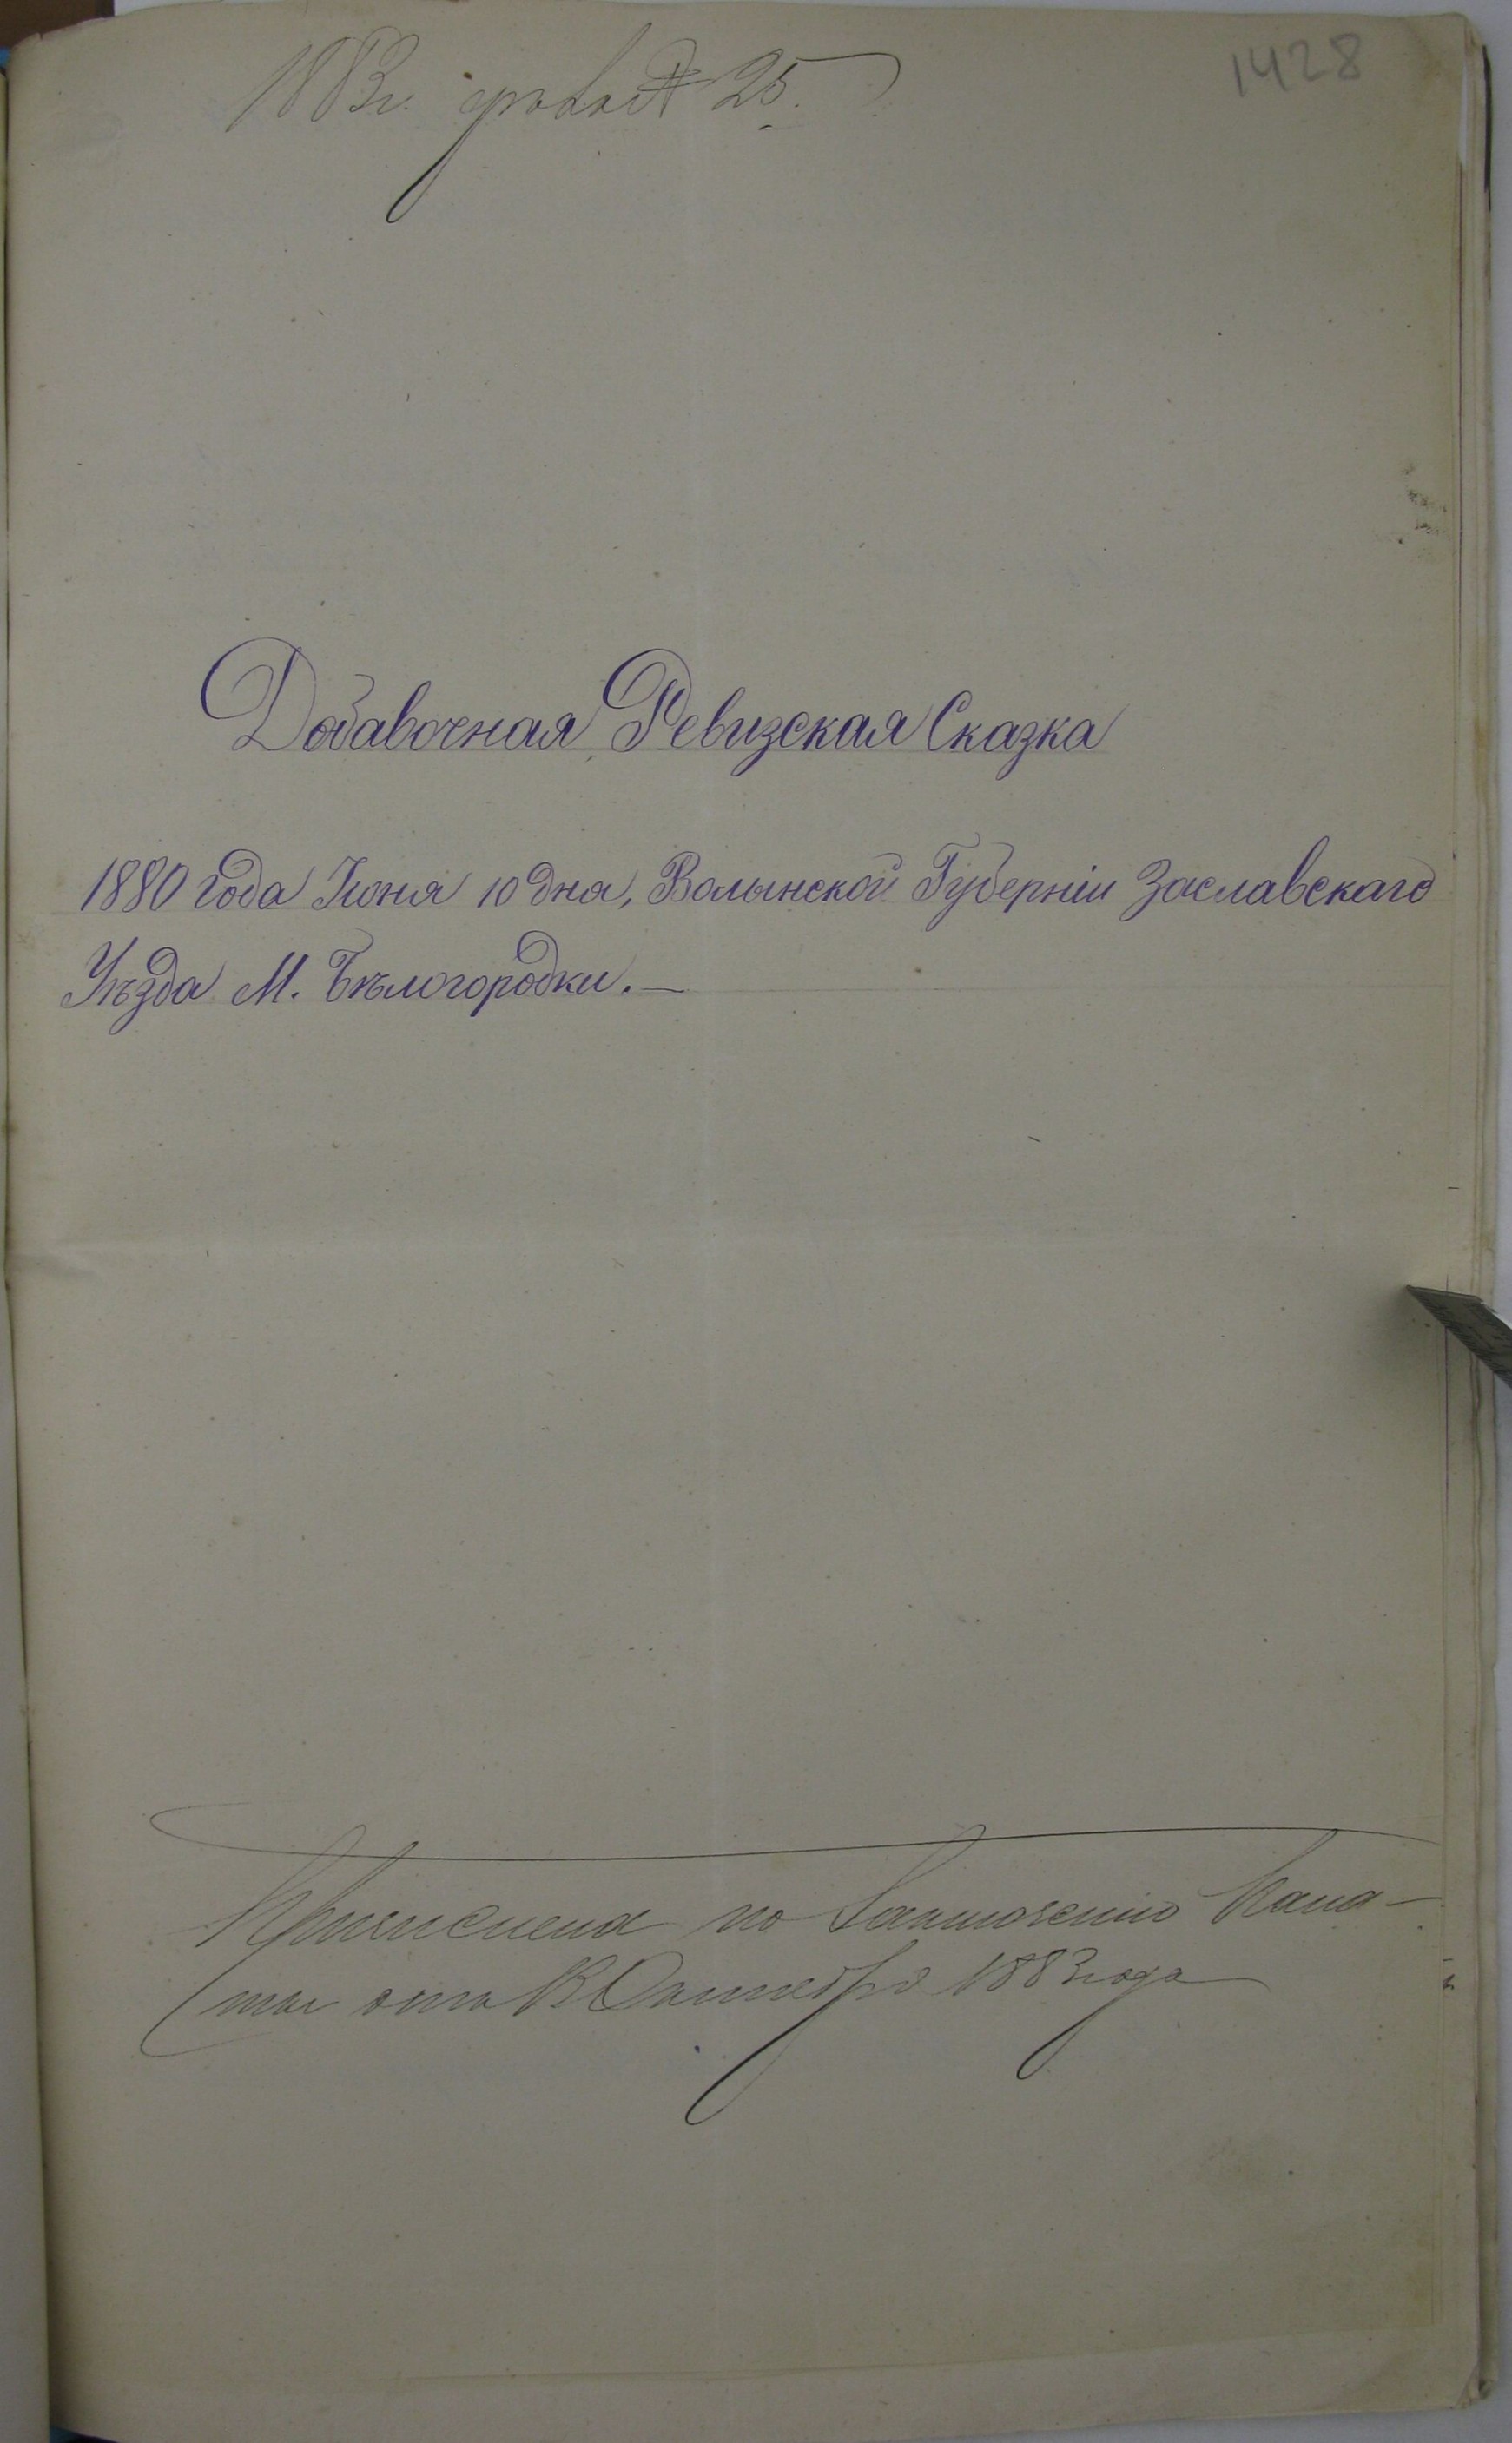 1883г. № 25.
1428
Добавочная Ревизская Сказка
1880 года Июня 10 дня, Волынской Губерніи Заславскаго
Уѣзда М. Бѣлогородки.—
Причислена по Заключенію Пала-
ты отъ Октября 1883 года